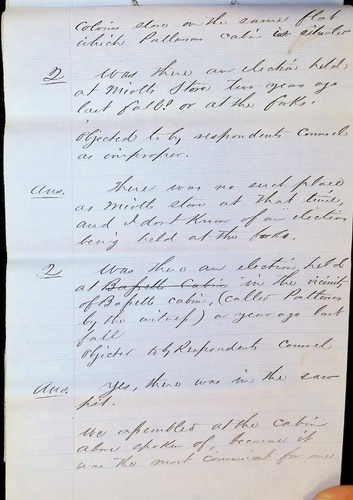 store on the same flat
which Pattersons cabin is situated
Q Was there an election held
at Store two years ago
last fall? or at the forks.
Objected to by respondents Counsel
as improper.
Ans. There was no such place
as store at that time,
and I dont know of an election
being held at the forks.
Q Was there an election held
at Bassetts Cabin in the vicinity
of Bassetts cabin, (called
by the witness) a year ago last
fall
Objected to by Respondents Counsel
Ans. Yes, there was in the saw
pit.
We assembled at the cabin
above spoken of, because it
was the most convenient for